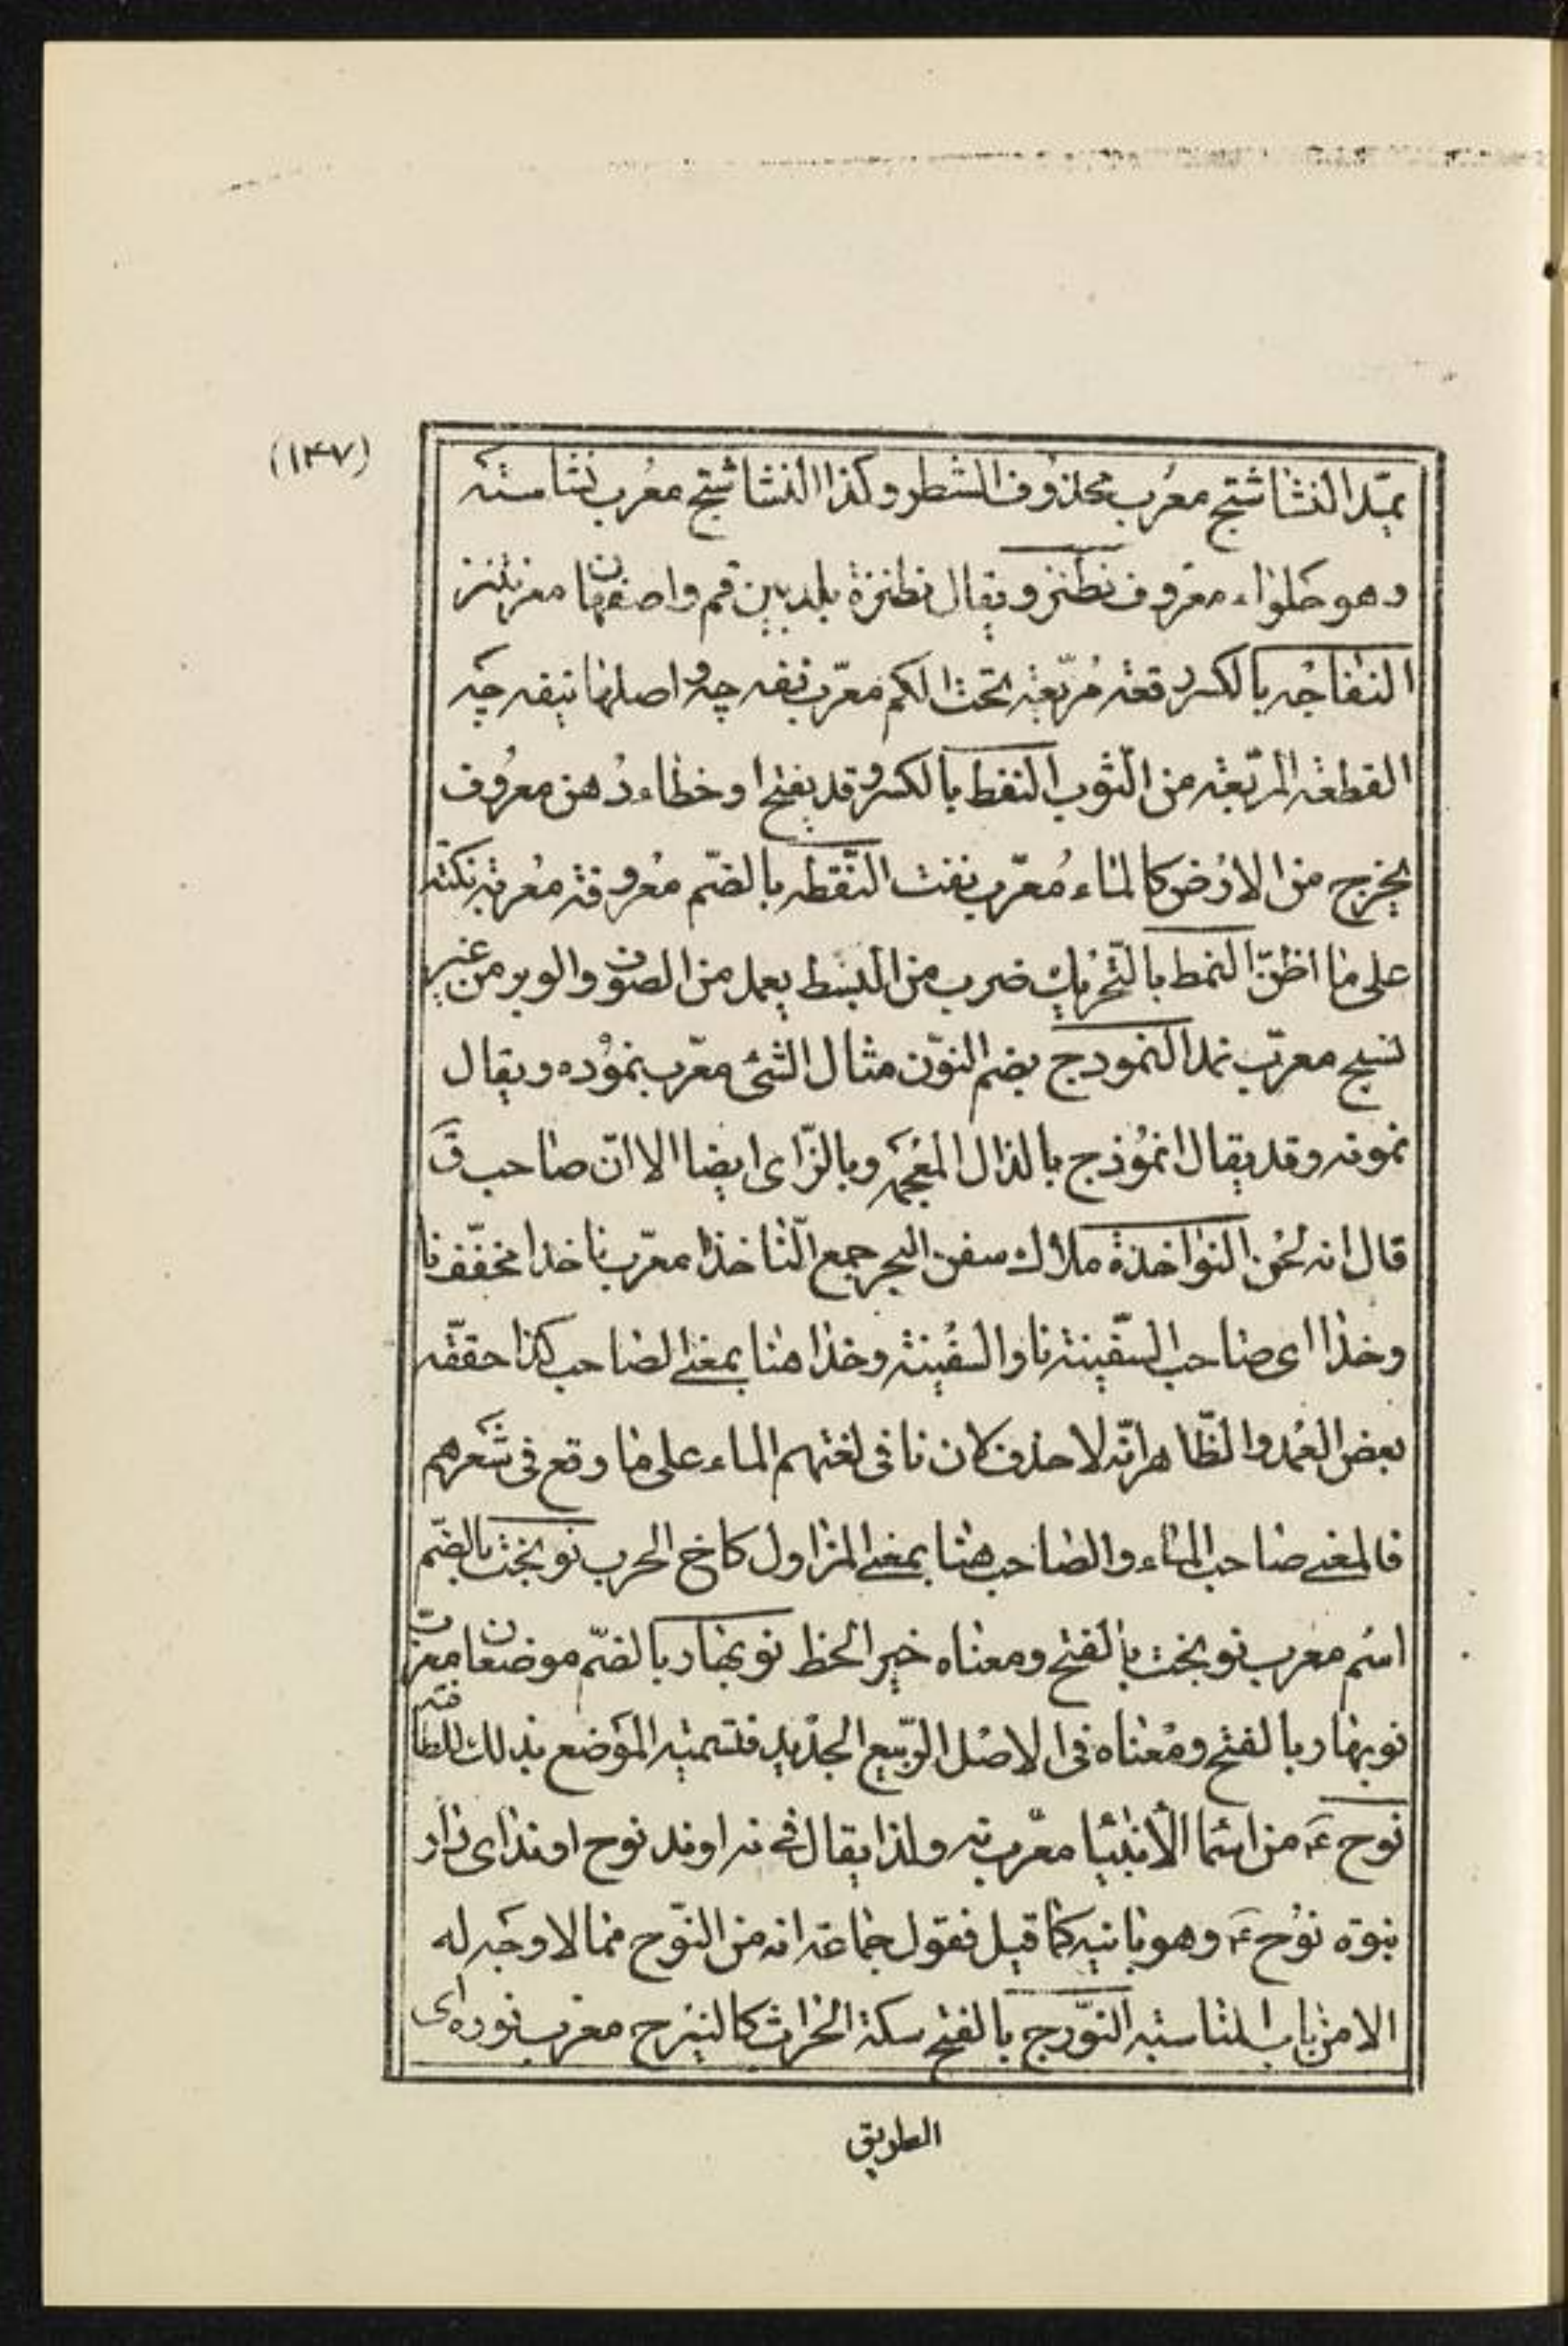 (۱۴۷)
يمدّ النشا شتج معرب محذوف الشطر وكذا النشاشتج معرب نشاسته
وهو حلواء معروف نطنز ويقال نطنزة بلد بين قم واصفهان معرب نتنز
النفاجه بالكسر رقعة مربّعة تحت الكم معرّب نفه چه واصلها نيفه چه
القطعة المربّعة من الثوب النفط بالكسر وقد يفتح او خطاء دهن معروف
يخرج من الارض كالماء معرّب نفت النّقطه بالضّم معروفة معربة نكته
على ما اظنّ النمط بالتّحريك ضرب من البسط يعمل من الصوف والوبر من غير
نسج معرّب نمد النمودج بضم النّون مثال الشئ معرّب نموده ويقال
نمونه وقد يقال انموذج بالذال المعجمة وبالزّاى ايضا الا انّ صاحب ق
قال انه لحن النواخذة ملاك سفن البحر جمع النّاخذا معرّب ناخدا مخفّف نا
وخذا اى صاحب السّفينة ناو السفينة وخذا هنا بمعنى الصاحب كذا حققّه
بعض العمد والظّاهر انّه لا حذف كان نا فى لغتهم الماء على ما وقع فى شعرهم
فالمعنى صاحب الماء والصاحب هنا بمعنى المزاول كاخ الحرب نوبخت بالضّم
اسم معرب نوبخت بالفتح ومعناه خير الحظ نوبهار بالضّم موضعان معرب
نوبهار بالفتح ومعناه فى الاصل الرّبيع الجديد فتسمية الموضع بذلك للطافته
نوح ع من اسما الأنبيا معرّب نه ولذا يقال فى نه اوند نوح اوند اى دار
بنوة نوح ع وهو بانيه كما قيل فقول جماعة انه من النّوح مما لا وجه له
الا من باب المناسبة النّورج بالفتح سكة الحراث كالنيرج معرب نوره اى
الطريق